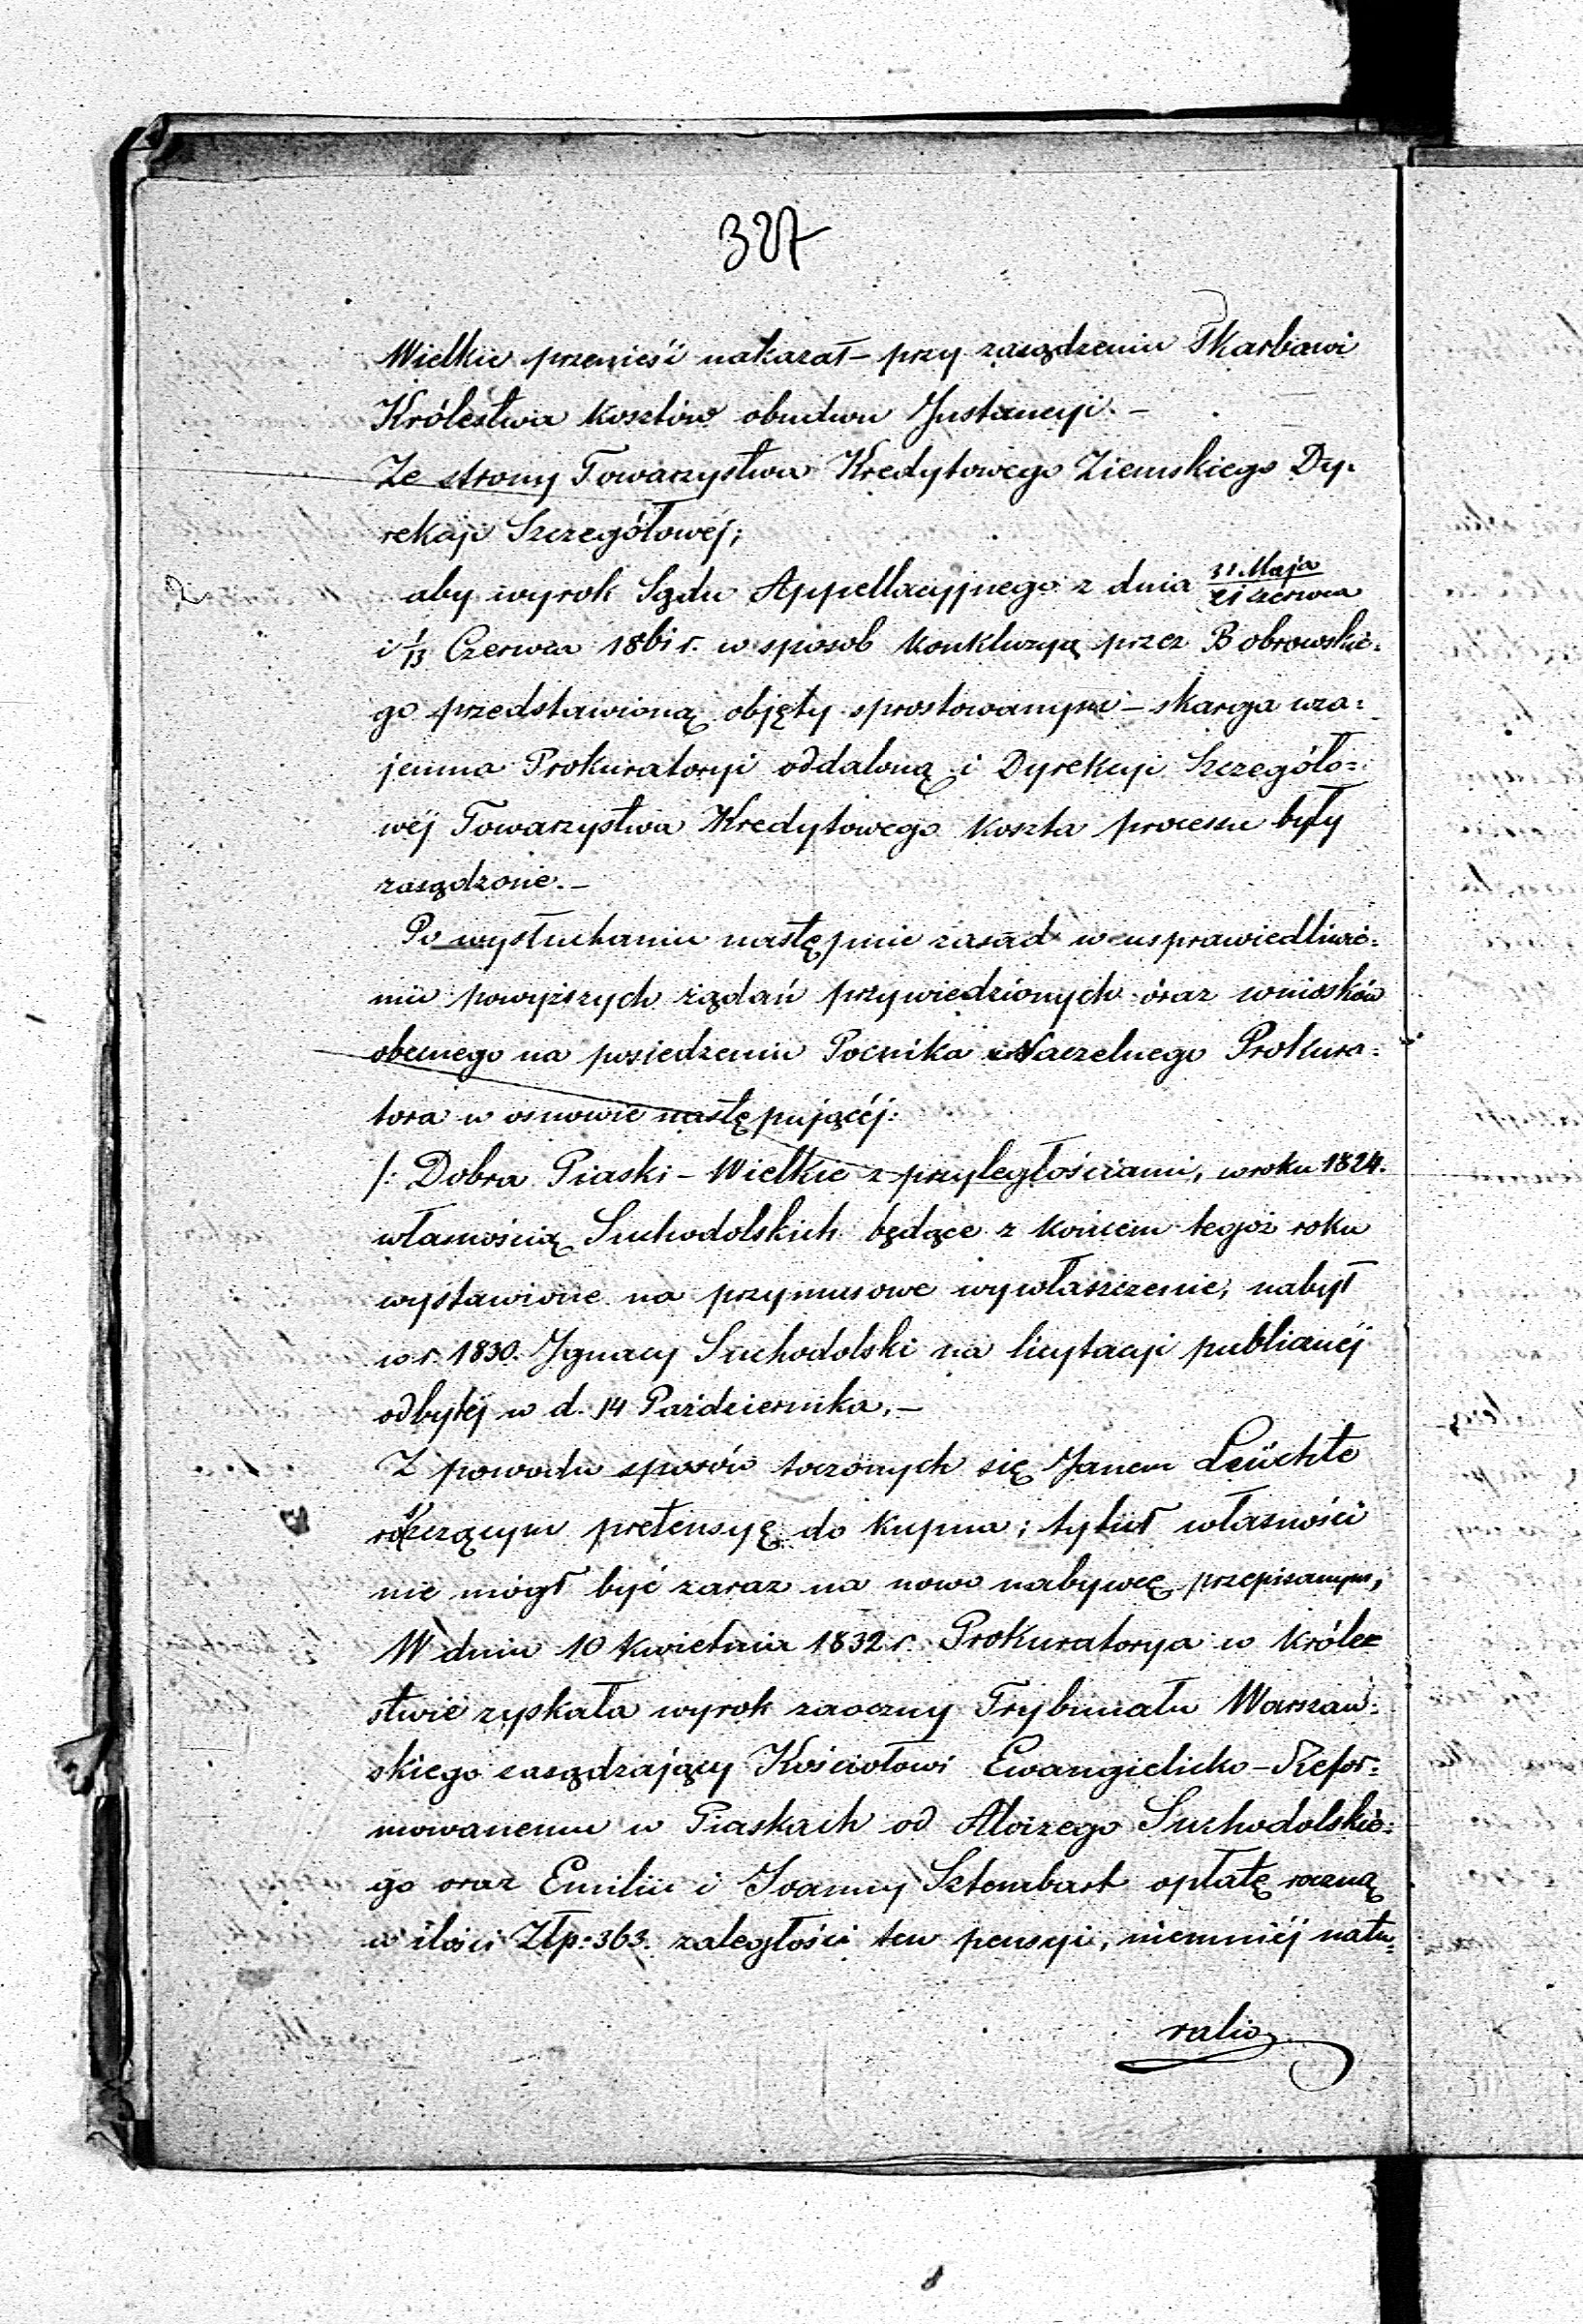 327
Wielkie przenieść nakazał – przy zasądzeniu Skarbowi
Królestwa kosztów obudwu Instancyi. –
Ze strony Towarzystwa Kredytowego Ziemskiego Dy-
rekcji Szczegółowéj;
2. aby wyrok Sądu Appellacyjnego z dnia 31. Maja
i 1/13 Czerwca 1861 r. w sposob konkluzyą przez Bobrowskie=
go przedstawioną objęty sprostowanym – skarga wza=
jemna Prokuratoryi oddaloną i Dyrekcyi Szczegóło=
wéj Towarzystwa Kredytowego koszta processu były
zasądzone. –
Po wysłuchaniu następnie zasad w usprawiedliwie=
niu powyższych żądań przywiedzionych oraz wniosków
obecnego na posiedzeniu Naczelnego Prokura=
tora w osnowie następującéj:
/: Dobra Piaski – Wielkie z przyległościami, w roku 1824.
własnością Suchodolskich będące z końcem tegoż roku
wystawione na przymusowe wywłaszczenie, nabył
w r. 1830. Ignacy Suchodolski na licytacyi publicznéj
odbytéj w d. 14 Października. –
Z powodu sporów toczonych się Janem Leüchte
roszczącym pretensyę do kupna; tytuł własności
nie mógł być zaraz na nowo nabywcę przepisanym,
W dniu 10 Kwietnia 1832 r. Prokuratorya w Króle=
stwie zyskała wyrok zaoczny Trybunału Warszaw=
skiego zasądzający Kościołowi Ewangielicko – Refor=
mowanemu w Piaskach od Aloizego Suchodolskie=
go oraz Emilii i Joanny Sztembart opłatę roczną
w ilości Złp: 363. zaległości téw pensyi, niemniéj natu=
ralia